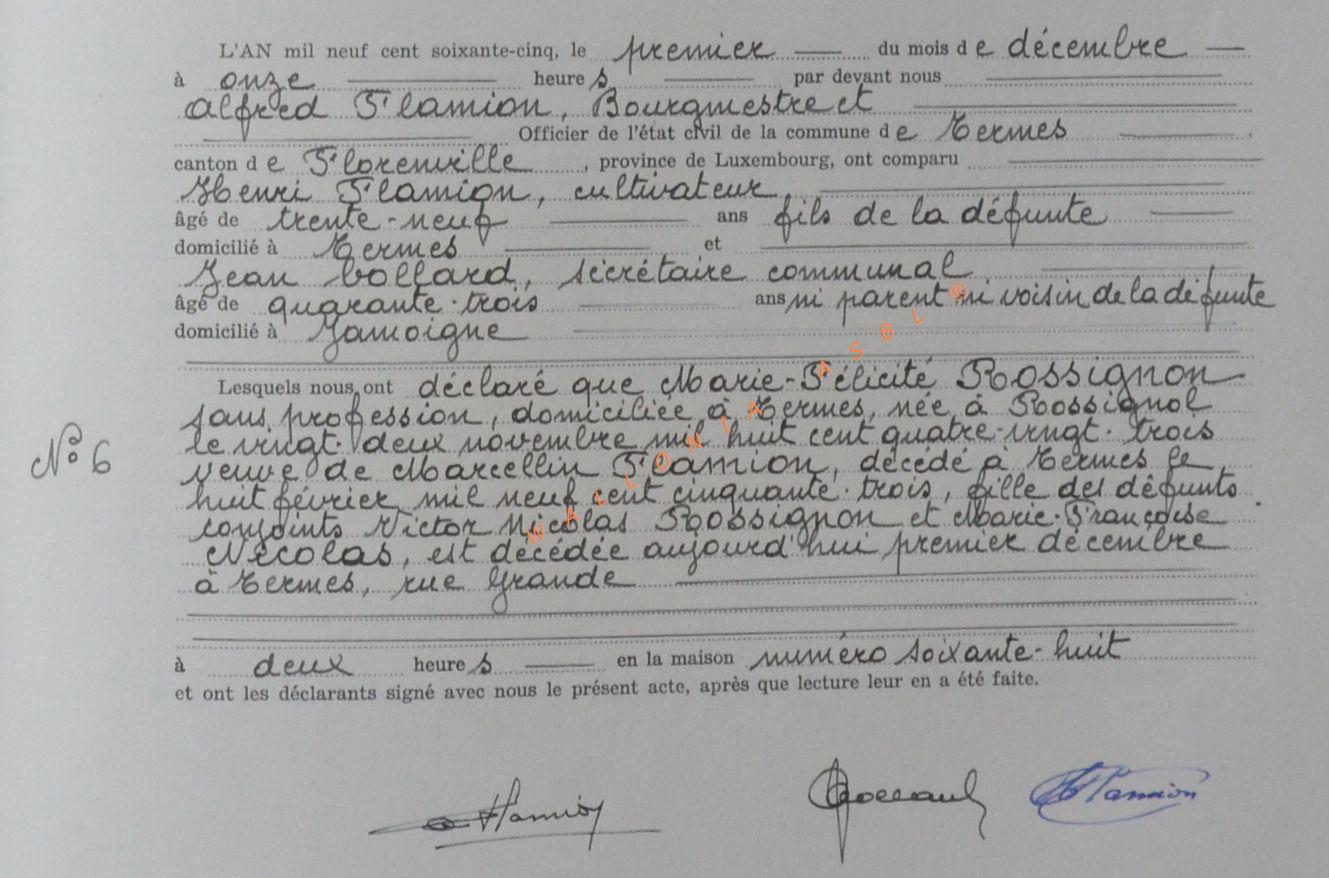 L'AN mil neuf cent soixante-cinq, le premier du mois de décembre
à onze heures par devant nous
Alfred Flamion, Bourgmestre et
Officier de l'état civil de la commune de Termes
canton de Florenville, province de Luxembourg, ont comparu
Henri Flamion, cultivateur,
âgé de trente-neuf ans fils de la défunte
domicilié à Termes et
Jean Collard, secrétaire communal
âgé de quarante-trois ans ni parent ni voisin de la défunte
domicilié à Jamoigne
Lesquels nous ont déclaré que Marie-Félicité Rossignon
sans profession, domiciliée à Termes, née à Rossignol
le vingt-deux novembre mil huit cent quatre-vingt-trois
N° 6
veuve de Marcellin Flamion, décédé à Termes le
huit février mil neuf cent cinquante-trois, fille des défunts
conjoints Victor Nicolas Rossignon et Marie-Françoise
Nicolas, est décédée aujourd'hui premier décembre
à Termes, rue Grande
à deux heures en la maison numéro soixante-huit
et ont les déclarants signé avec nous le présent acte, après que lecture leur en a été faite.
WALLONIA ASBL ®
Flamion